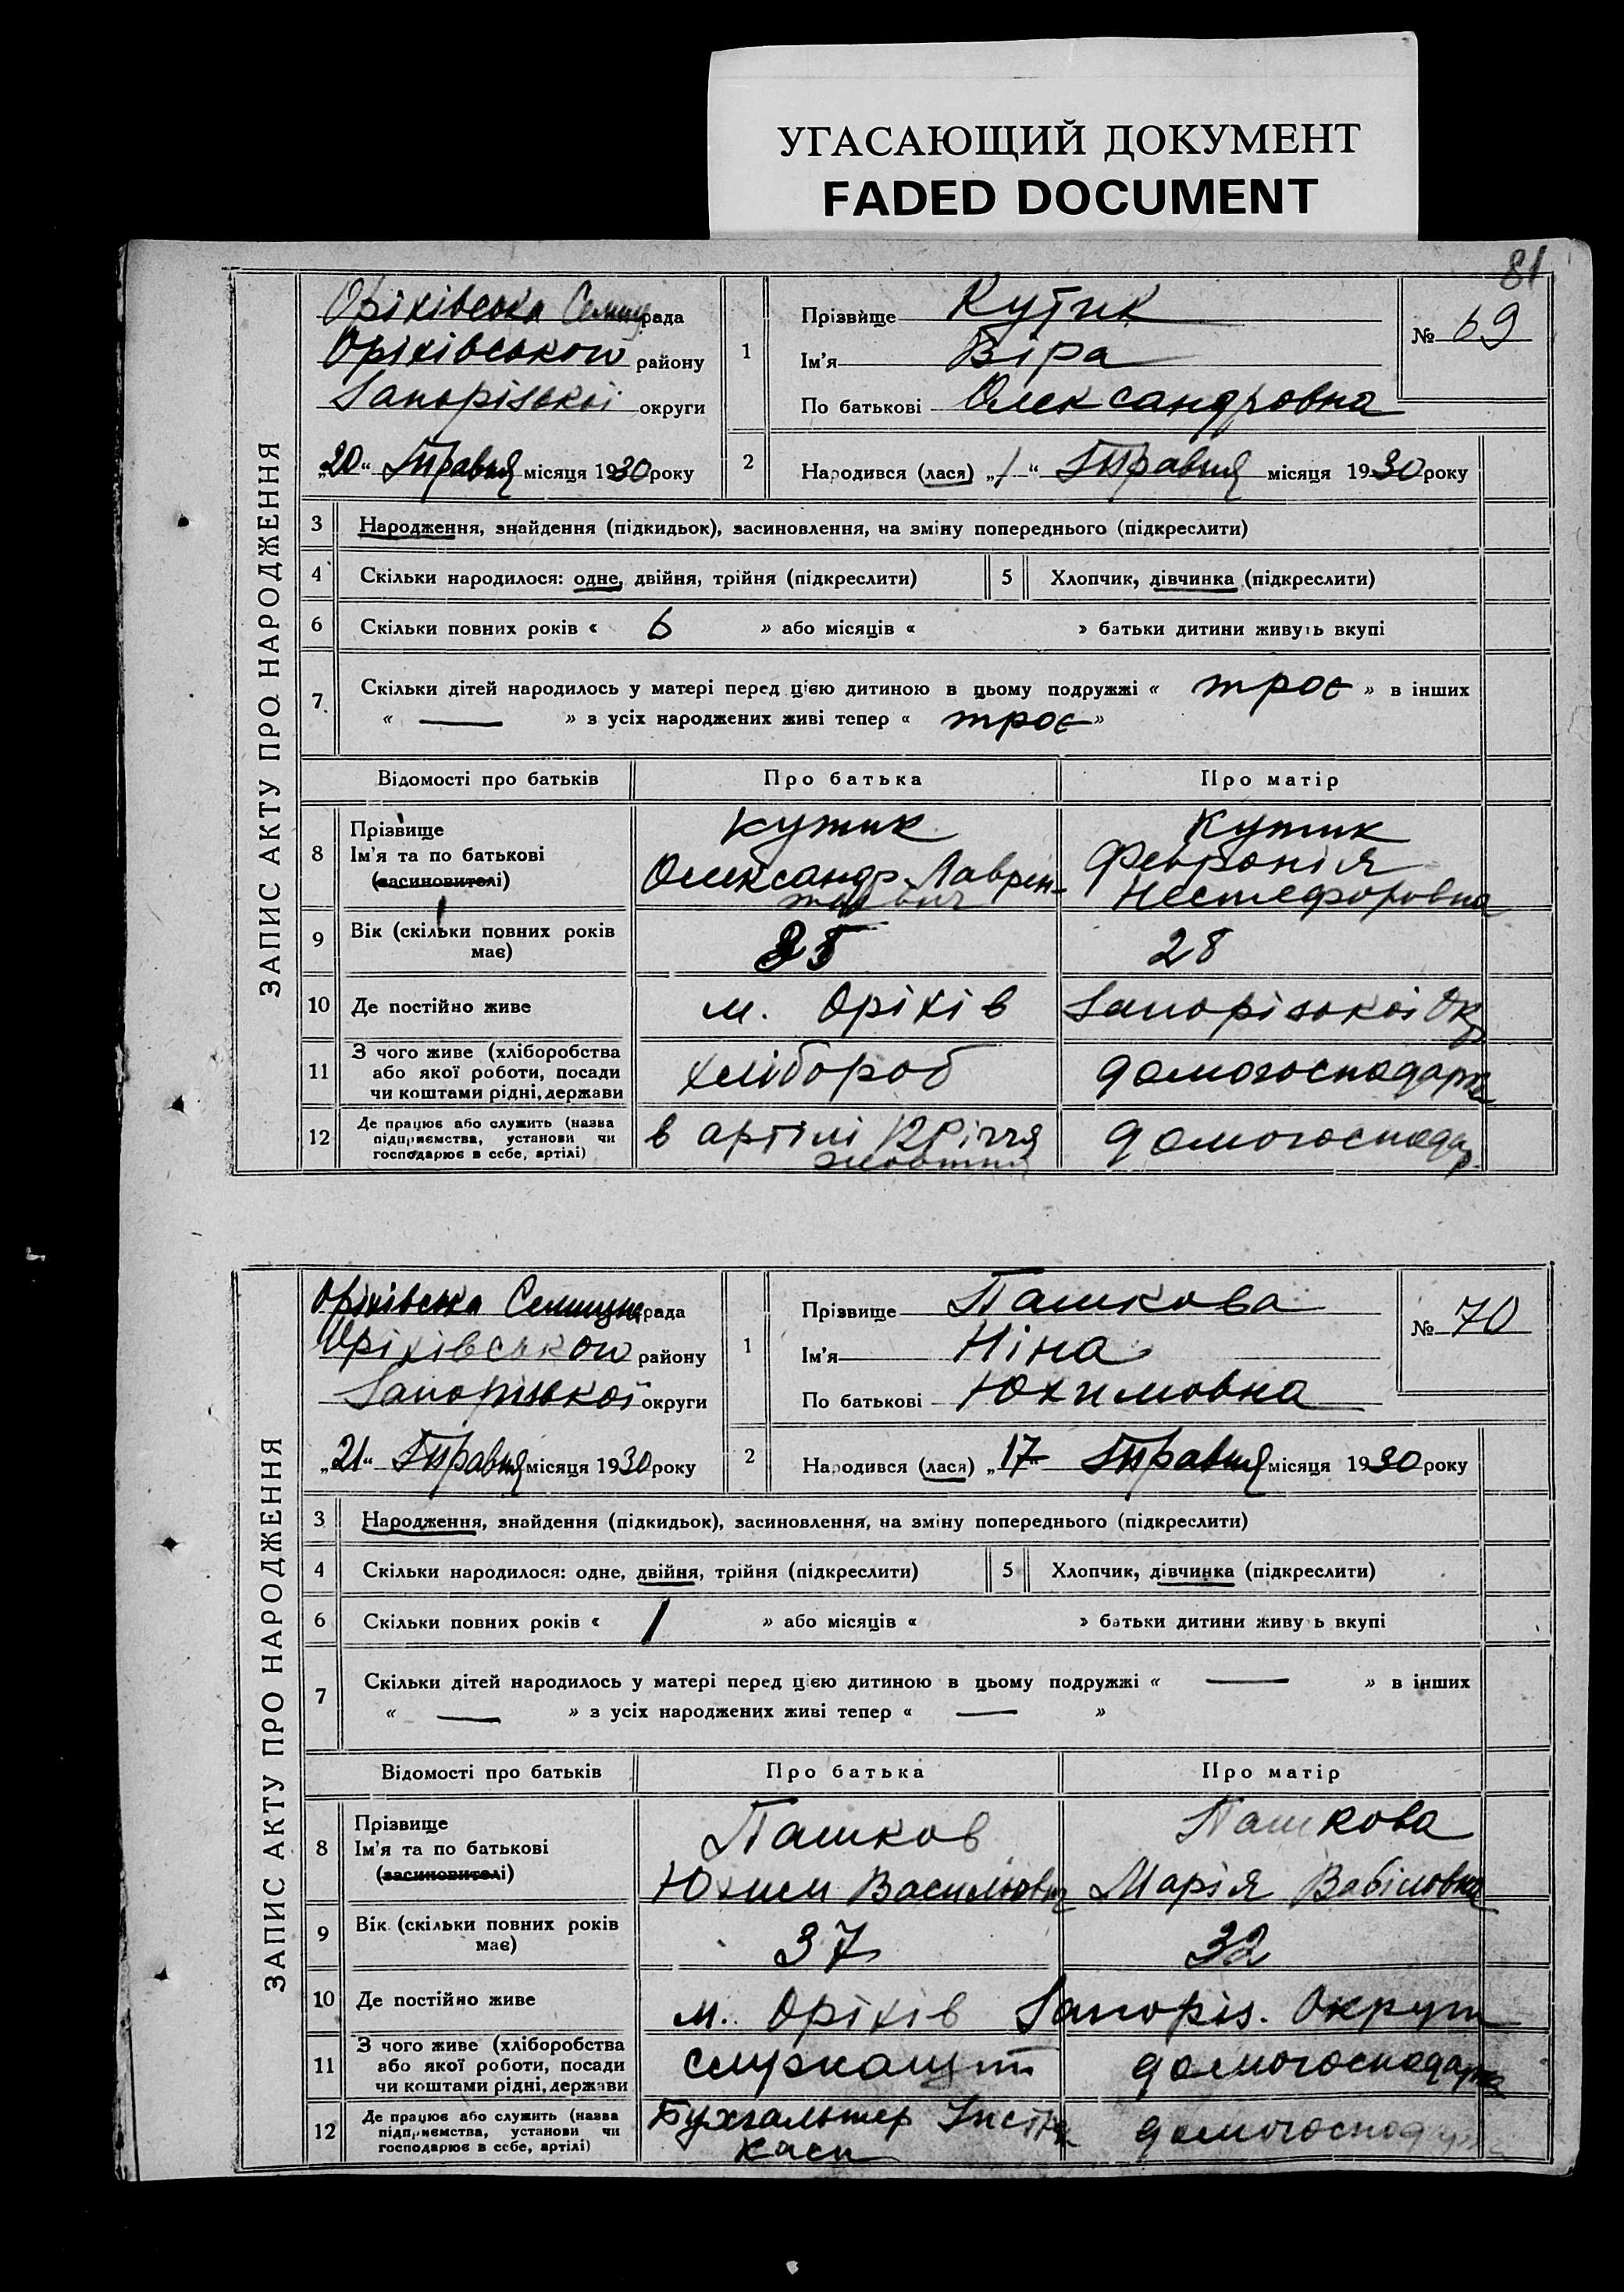 УГАСАЮЩИЙ ДОКУМЕНТ
FADED DOCUMENT
81
ЗАПИС АКТУ ПРО НАРОДЖЕННЯ
Оріхівська рада
Оріхівського району
Запорізької округи
„20“ Травня місяця 1930 року
1
Прізвище Кутик
Ім'я Віра
По батькові Олександровна
№ 69
2
Народився (лася) „1“ Травня місяця 1930 року
3 Народження, знайдення (підкидьок), засиновлення, на зміну попереднього (підкреслити)
4 Скільки народилося: одне, двійня, трійня (підкреслити)
5 Хлопчик, дівчинка (підкреслити)
6 Скільки повних років « 6 » або місяців « » батьки дитини живуть вкупі
7. Скільки дітей народилось у матері перед цією дитиною в цьому подружжі « троє » в інших
« — » з усіх народжених живі тепер « троє »
Відомості про батьків Про батька Про матір
8 Прізвище Кутик Кутик
Ім'я та по батькові Олександр Лаврен- Февронія
(засиновителі) Нестефоровна
9 Вік (скільки повних років 35 28
має)
10 Де постійно живе м. Оріхів Запорізької Окр
11 З чого живе (хліборобства хлібороб домогосподарка
або якої роботи, посади
чи коштами рідні, держави
12 Де працює або служить (назва в артілі 12 річчя домогосподар
підприємства, установи чи жовтня
господарює в себе, артілі)
ЗАПИС АКТУ ПРО НАРОДЖЕННЯ
Оріхівська рада
Оріхівського району
Запорізької округи
„21“ Травня місяця 1930 року
1
Прізвище Пашкова
Ім'я Ніна
По батькові Юхимовна
№ 70
2
Народився (лася) „17 Травня місяця 1930 року
3 Народження, знайдення (підкидьок), засиновлення, на зміну попереднього (підкреслити)
4 Скільки народилося: одне, двійня, трійня (підкреслити)
5 Хлопчик, дівчинка (підкреслити)
6 Скільки повних років « 1 » або місяців « » батьки дитини живу ь вкупі
7 Скільки дітей народилось у матері перед цією дитиною в цьому подружжі « — » в інших
« — » з усіх народжених живі тепер « — »
Відомості про батьків Про батька Про матір
8 Прізвище Пашков Пашкова
Ім'я та по батькові Юхим Василович Марія
(засиновителі)
9 Вік (скільки повних років 37 32
має)
10 Де постійно живе м. Оріхів Запоріз. Округи
11 З чого живе (хліборобства домогосподарка
або якої роботи, посади
чи коштами рідні, держави
12 Де працює або служить (назва Бухгальтер домогосподарка
підприємства, установи чи каси
господарює в себе, артілі)